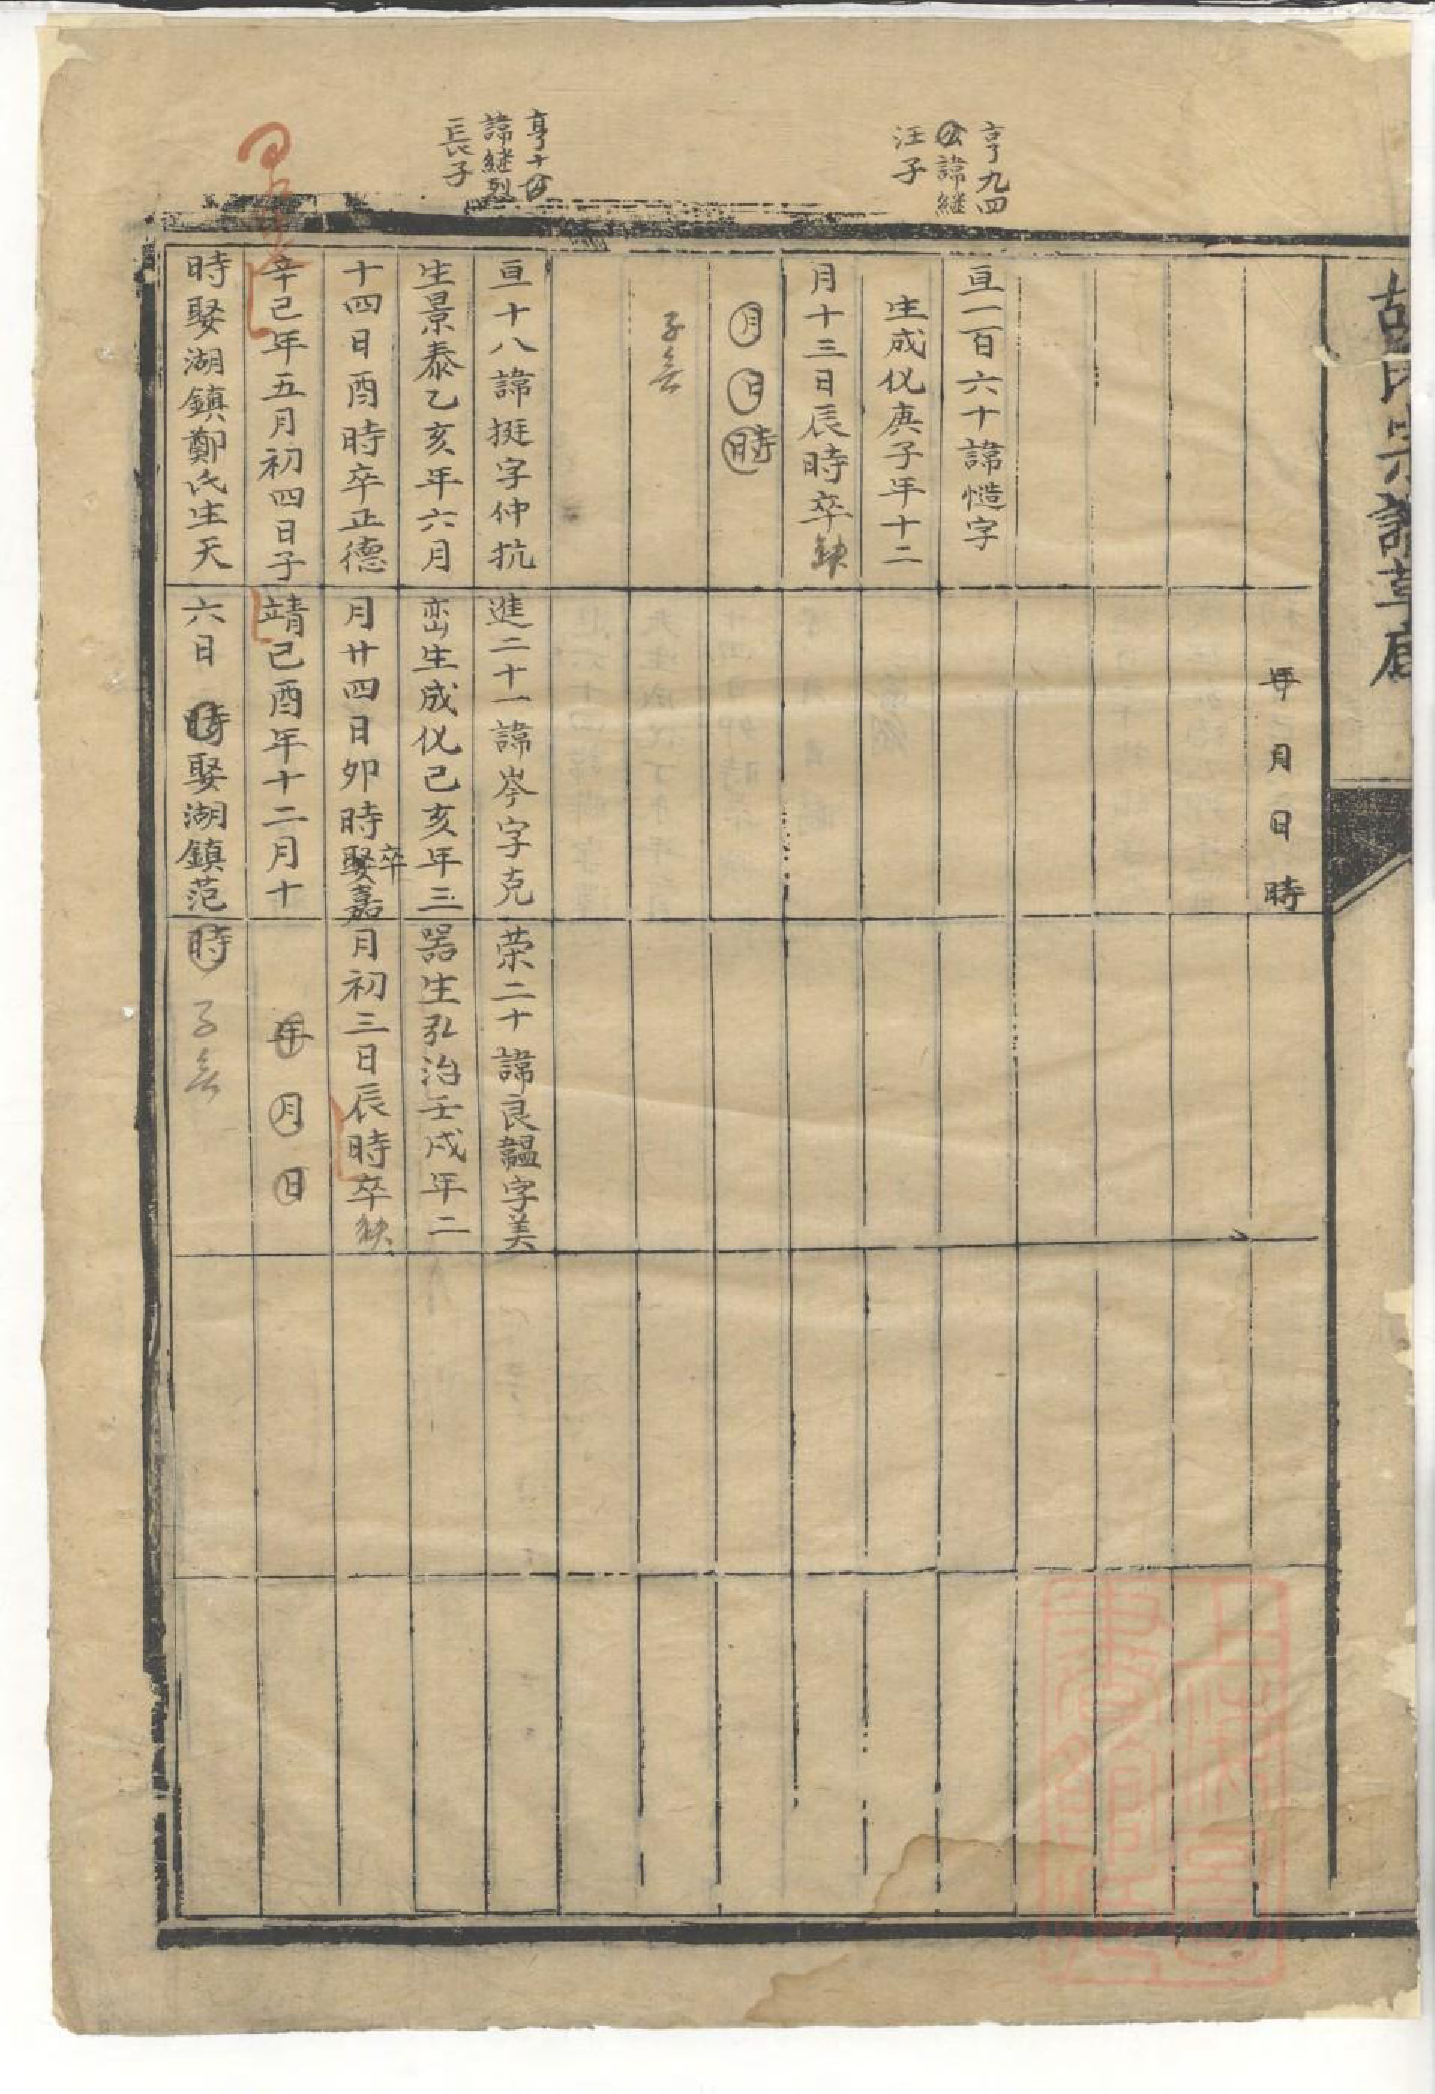 亨九四
公諱継
汪子
亨十公
諱継烈
長子
宗譜草
年月日時
亘一百六十諱慥字
生成化庚子年十二
月十三日辰時卒缺
月日時
子無
亘十八諱挺字仲抗
生景泰乙亥年六月
十四日酉時卒正德
辛巳年五月初四日子
時娶湖鎮鄭氏生天
進二十一諱岑字克
峦生成化己亥年三
月廿四日卯時卒娶嘉
靖己酉年十二月十
六日時娶湖鎮范
荣二十諱良韞字美
器生弘治壬戌年二
月初三日辰時卒缺
年月日
時子無
上海圖
書館藏